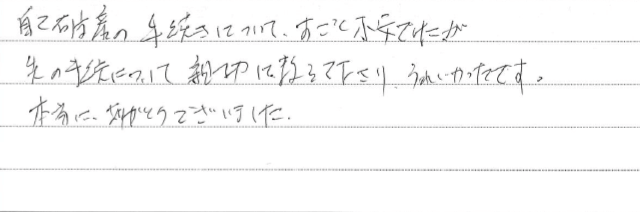 自己破産の手続きについて、すごく不安でしたが
先の手続について親切に教えて下さり、うれしかったです。
本当に、ありがとうございました。